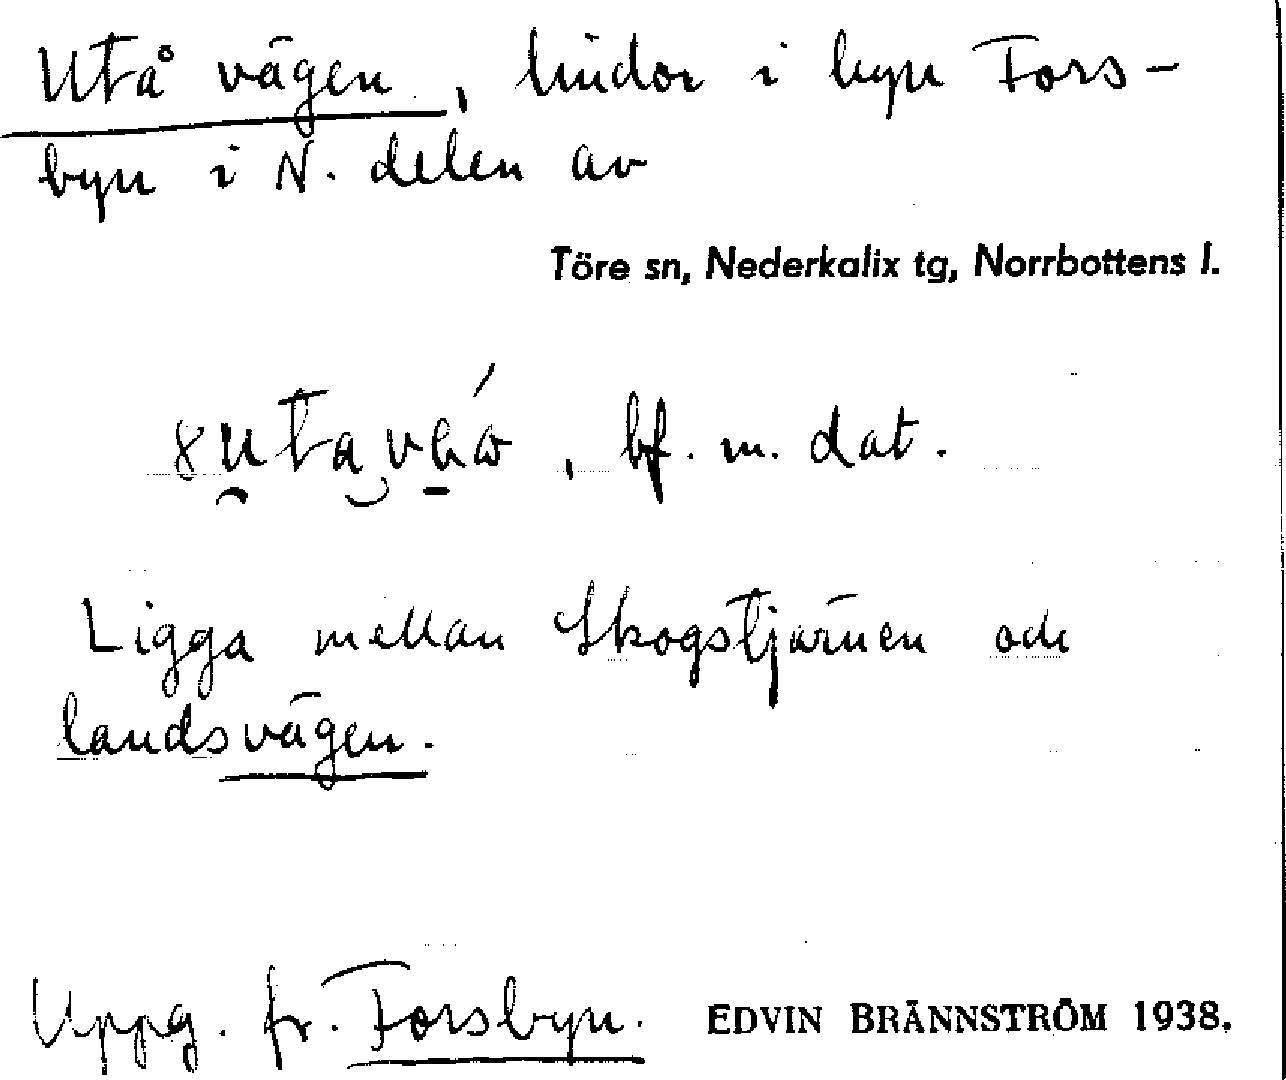 Utå vägen, lindor i byn Fors-
byn i N. delen av
Töre sn, Nederkalix tg, Norrbottens l.
, bf. m. dat.
Ligga mellan Skogstjärnen och
landsvägen.
Uppg. fr. Forsbyn. EDVIN BRÄNNSTRÖM 1938.